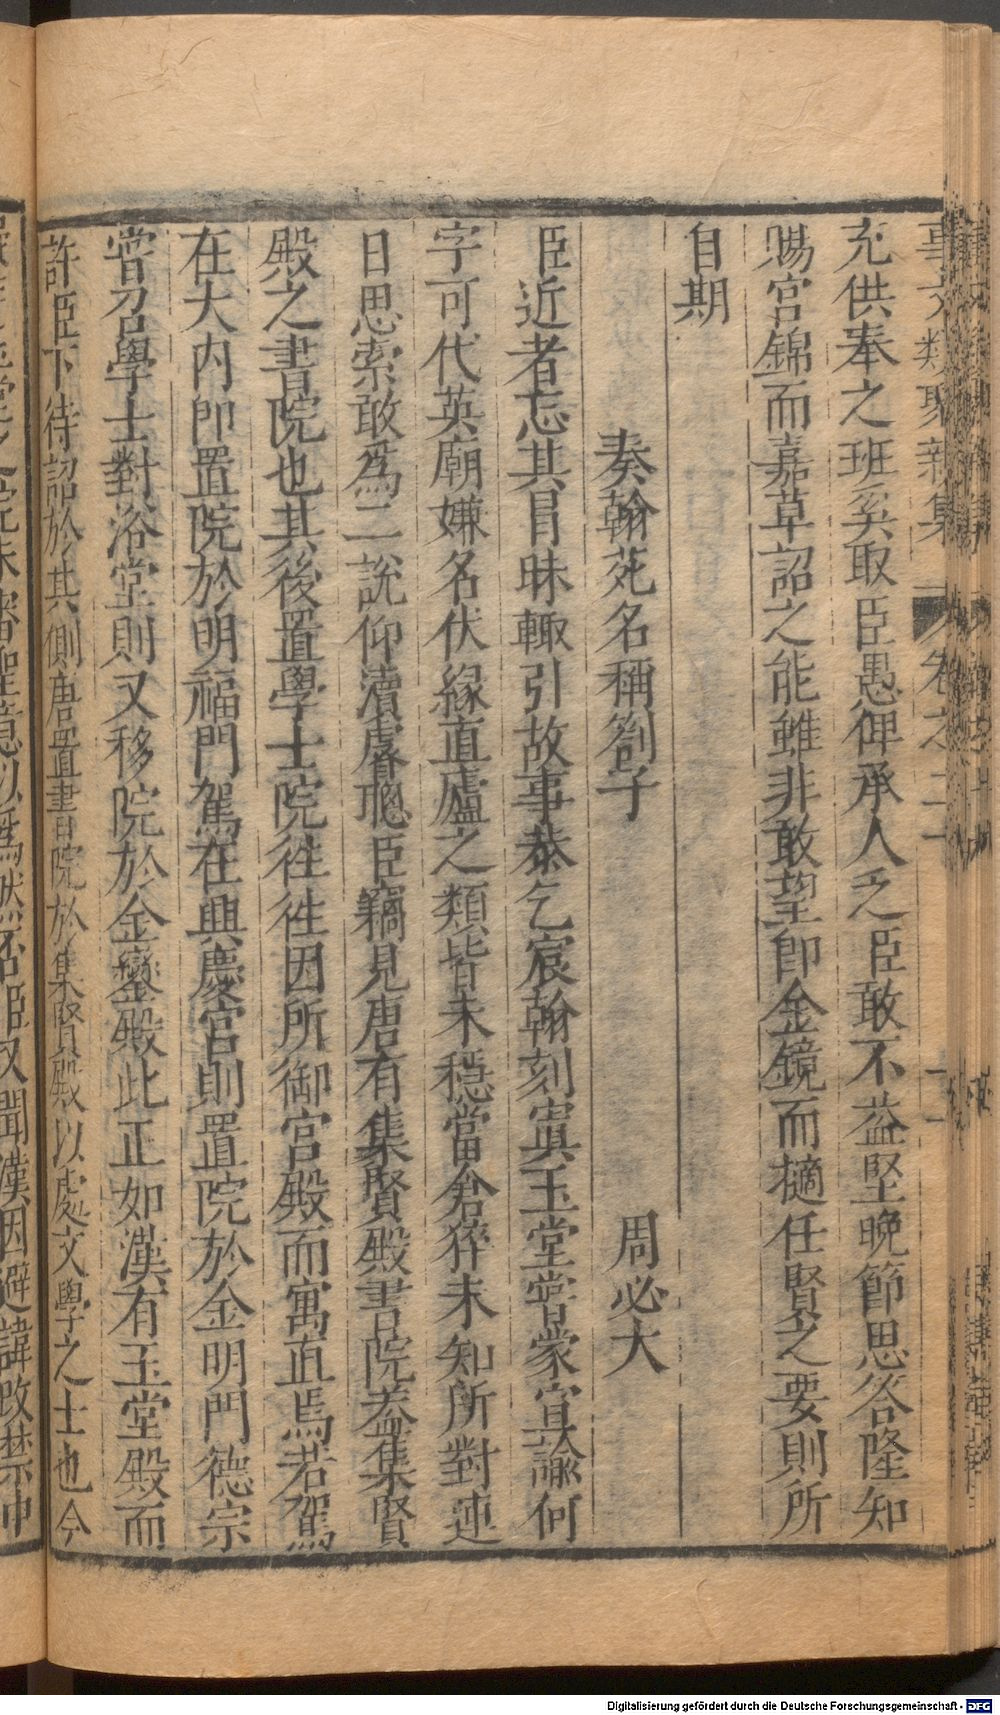 事文類聚新集 卷之二十 十一
充供奉之班奚取臣愚俾承人乏臣敢不益堅晚節思答隆知
賜宮錦而嘉草詔之能雖非敢望卽金鏡而擿任賢之要則所
自期
奏翰苑名稱劄子 周必大
臣近者忘其冒昧輙引故事恭乞宸翰刻寘玉堂嘗蒙宣諭何
字可代英廟嫌名伏緣直廬之類皆未穩當倉猝未知所對連
日思索敢爲二說仰瀆睿聰臣竊見唐有集賢殿書院葢集賢
殿之書院也其後置學士院徃徃因所御宮殿而寓直焉若駕
在大內卽置院於明福門駕在興慶宮則置院於金明門德宗
嘗召學士對浴堂則又移院於金鑾殿此正如漢有玉堂殿而
許臣下待詔於其側唐置書院於集賢殿以處文學之士也今
意以爲然否臣又聞漢因避諱改禁中
Digitalisierung gefördert durch die Deutsche Forschungsgemeinschaft - DFG